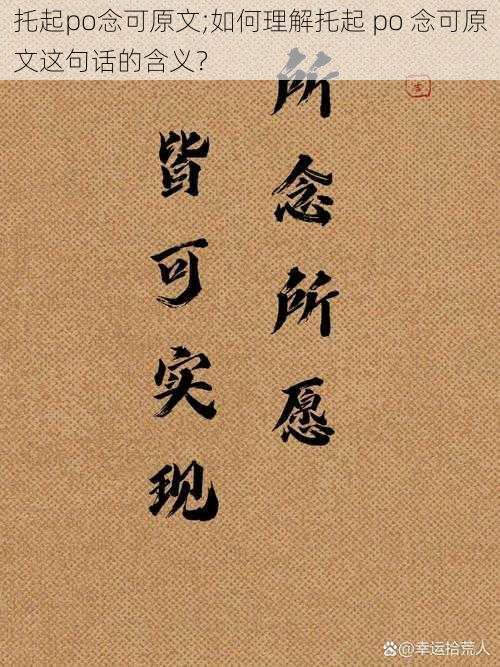 托起po念可原文;如何理解托起 po 念可原
文这句话的含义?
所念所愿
皆可实现
@幸运拾荒人